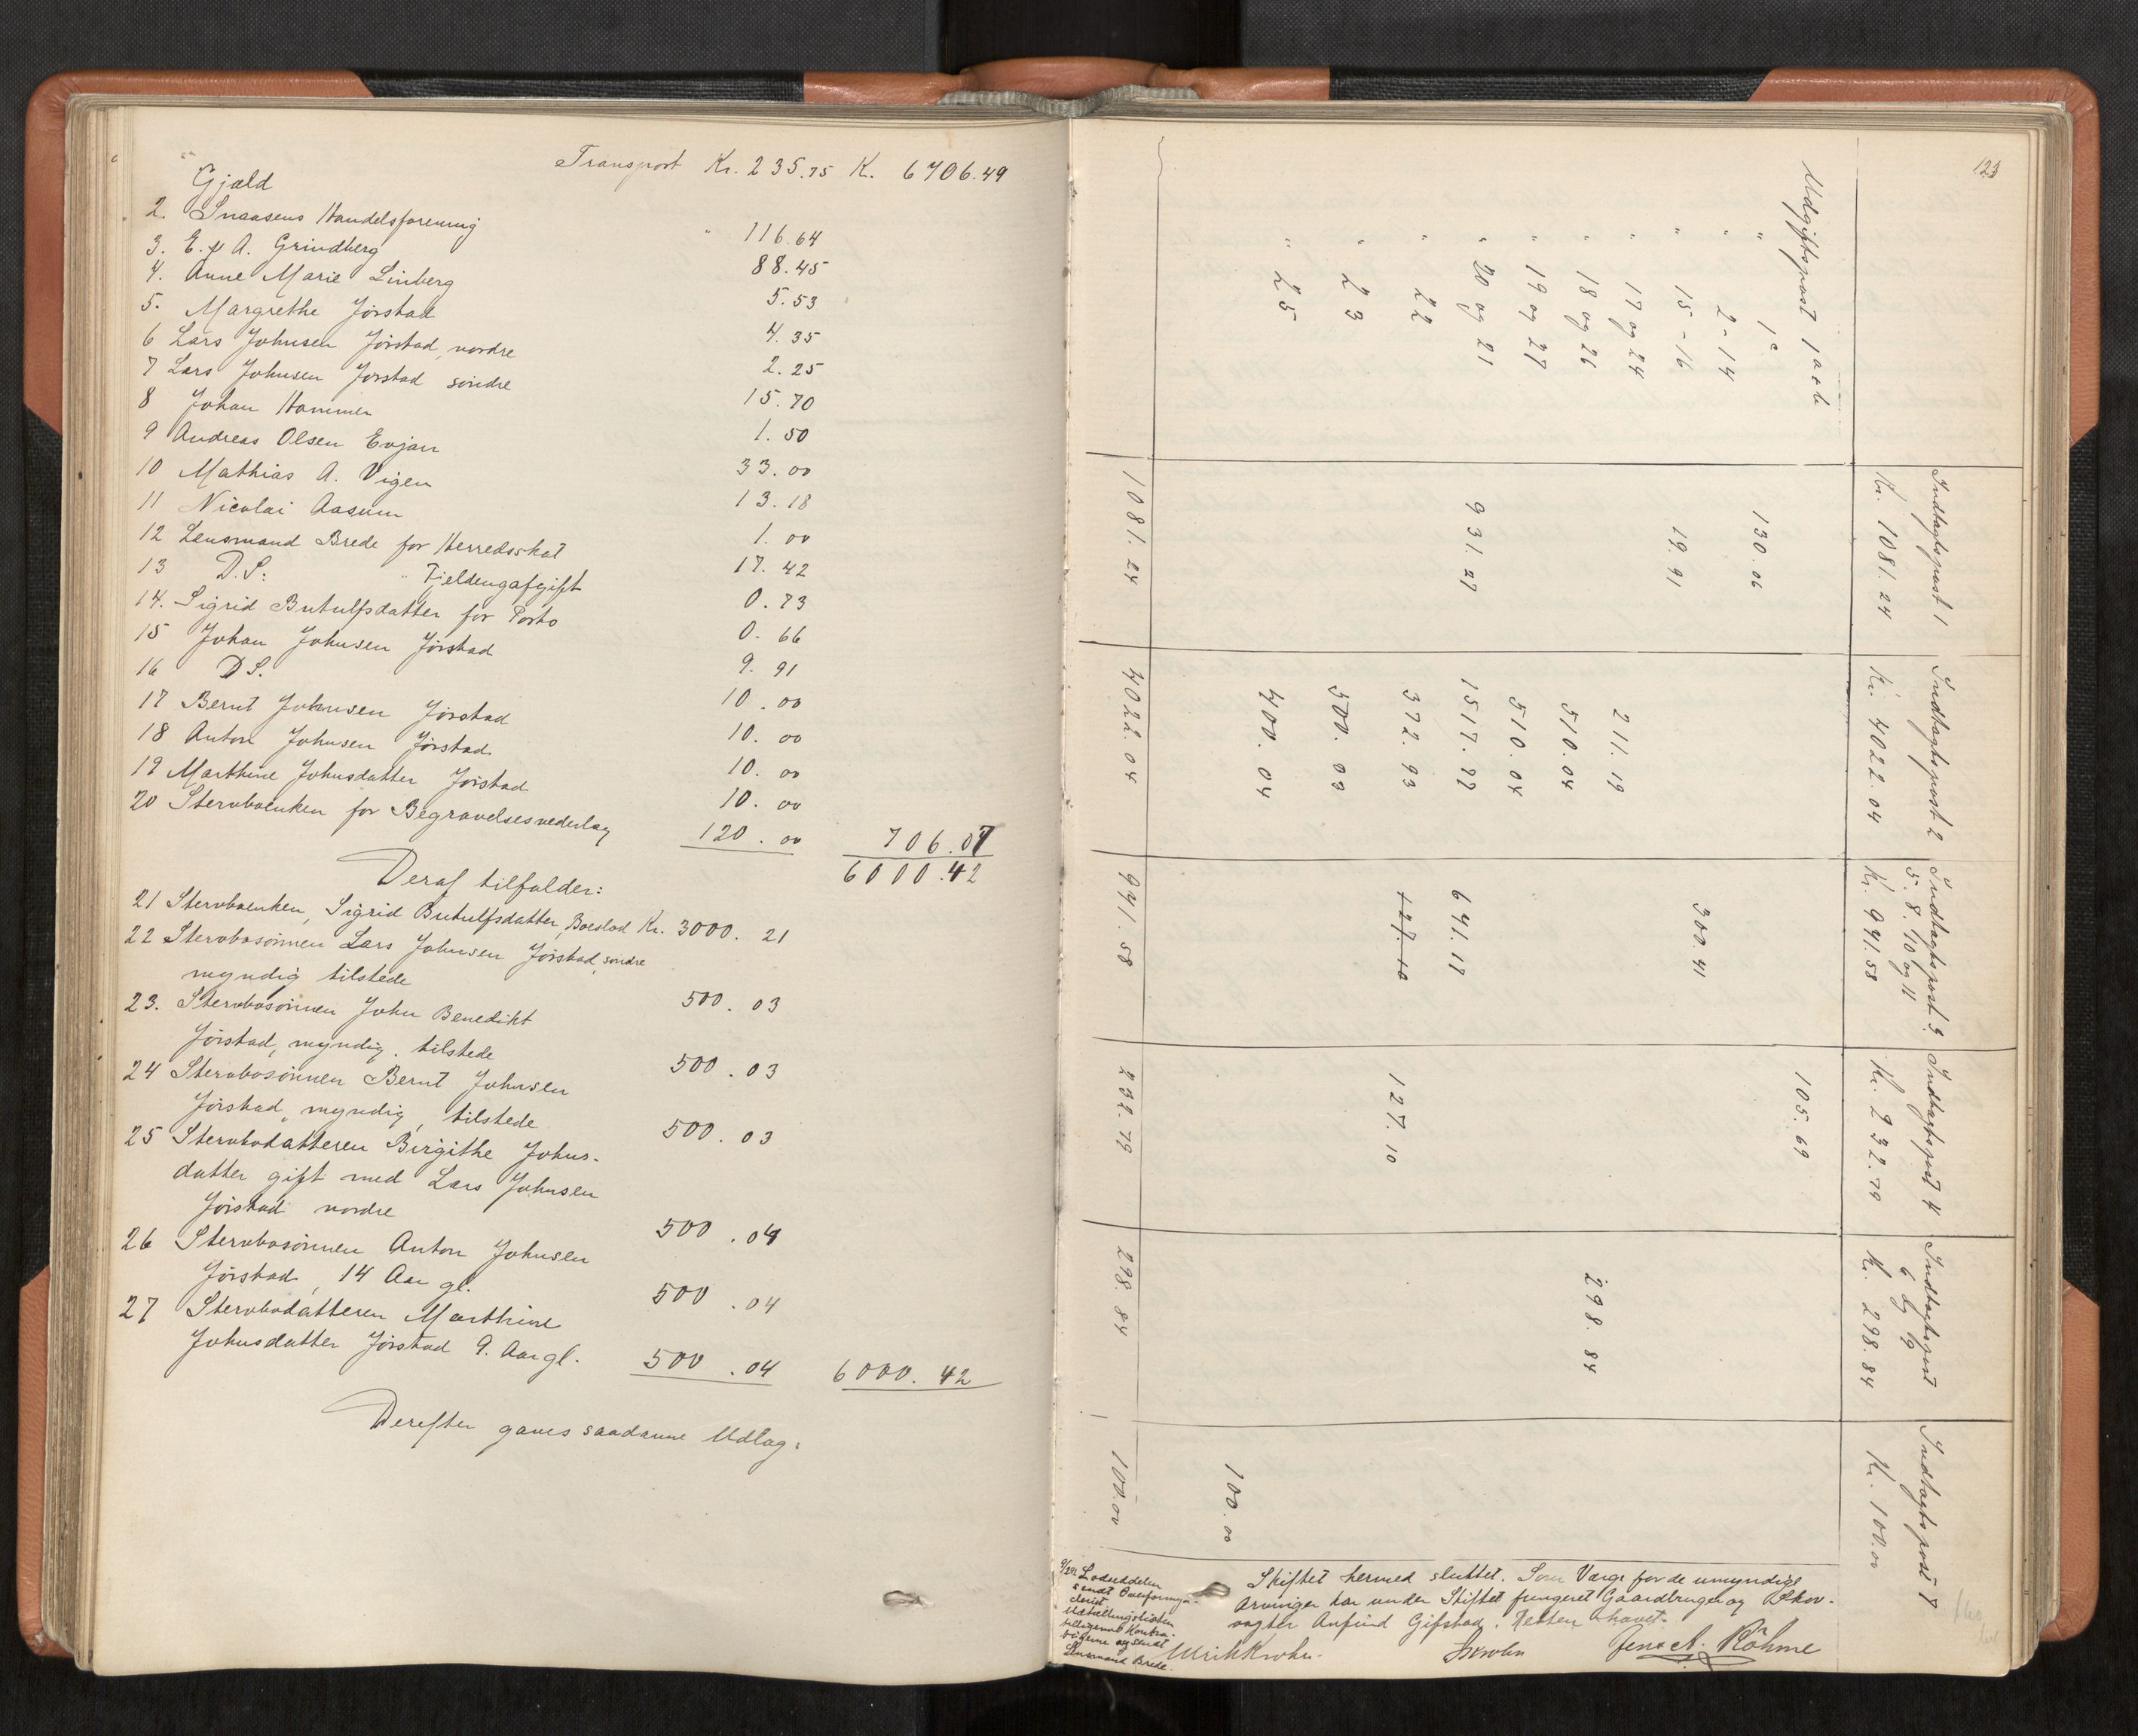 Transport Kr. 235.75 K. 6706.49
Gjæld
2. Snaasens Handelsforening " 116.64
3. E. & A. Grindberg 88.45
4. Anne Marie Linberg 5.53
5. Margrethe Jørstad 4.35
6 Lars Johnsen Jørstad, nordre 2.25
7 Lars Johnsen Jørstad søndre 15.70
8 Johan Hammer 1.50
9 Andreas Olsen Evjan 33.00
10 Mathias A. Vigen 13.18
11 Nicolai Aasum 1.00
12 Lensmand Brede for Herredsskat 17.42
13 D.S: " Tieldengafgift 0.73
14. Sigrid Butulfsdatter for Porto 0.66
15 Johan Johnsen Jørstad 9.91
16 D S. 10.00
17 Bernt Johnsen Jørstad 10.00
18 Anton Johnsen Jørstad 10.00
19 Marthine Johnsdatter Jørstad 10.00
20 Stervboenken for Begravelsesvederlag 120.00 706.07
6000.42
Deraf tilfalder:
21 Stervboenken, Sigrid Butulfsdatter, Boeslod Kr. 3000.21
22 Stervbosønnen Lars Johnsen Jørstad, søndre
myndig tilstede 500.03
23. Stervbosønnen John Benedikt
Jørstad, myndig, tilstede 500.03
24 Stervbosønnen Bernt Johnsen
Jørstad, myndig, tilstede 500.03
25 Stervbodatteren Birgithe Johns-
datter gift med Lars Johnsen
Jørstad nordre 500.04
26 Stervbosønnen Anton Johnsen
Jørstad, 14 Aar gl. 500.04
27 Stervbodatteren Marthine
Johnsdatter Jørstad 9. Aar gl. 500.04 6000.42
Derefter gaves saadanne Udlag:
123
Indtægtspost 1 Indtægtspost 2 Indtægtspost 3. Indtægtspost 4 Indtægtspost Indtægtspost 7
5. 8. 10 og 11 6 og 9
Kr. 1081.24 Kr. 4022.04 Kr. 941.58 Kr. 232.79 Kr. 298.84 Kr. 100.00
Udgiftspost 1 a & b 105.69
" 1c 130.06
" 2-14 300.41
" 15-16 19.91
" 17 og 24 211.19 298.84
" 18 og 26 510.04
" 19 og 27 510.04
" 20 og 21 931.27 1517.77 641.17
" 22 372.93 127.10 127.10
" 23 500.03
" 25 400.04 100.00
1081.24 4022.04 941.58 232.79 298.84 100.00
Skiftet hermed sluttet. Som Værge for de umyndige
Arvinger har under Skiftet fungeret Gaardbruger og Skov-
vogter Anfind Gifstad. Retten hævet.
Ulrik Krohn. Jens A. Røhme
Lodseddelen
sendt Overformyn-
deriet
Lensmand Brede.